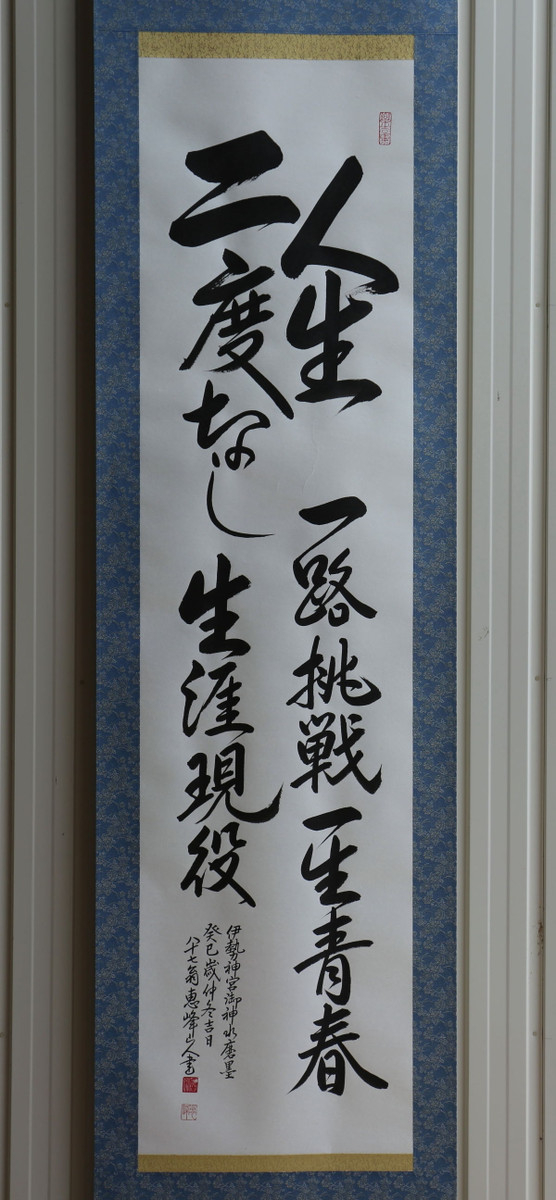 人生 一路挑戦一生青春
二度なし 生涯現役
伊勢神宮御神水磨墨
癸巳歳仲冬吉日
八十七翁恵峰山人書